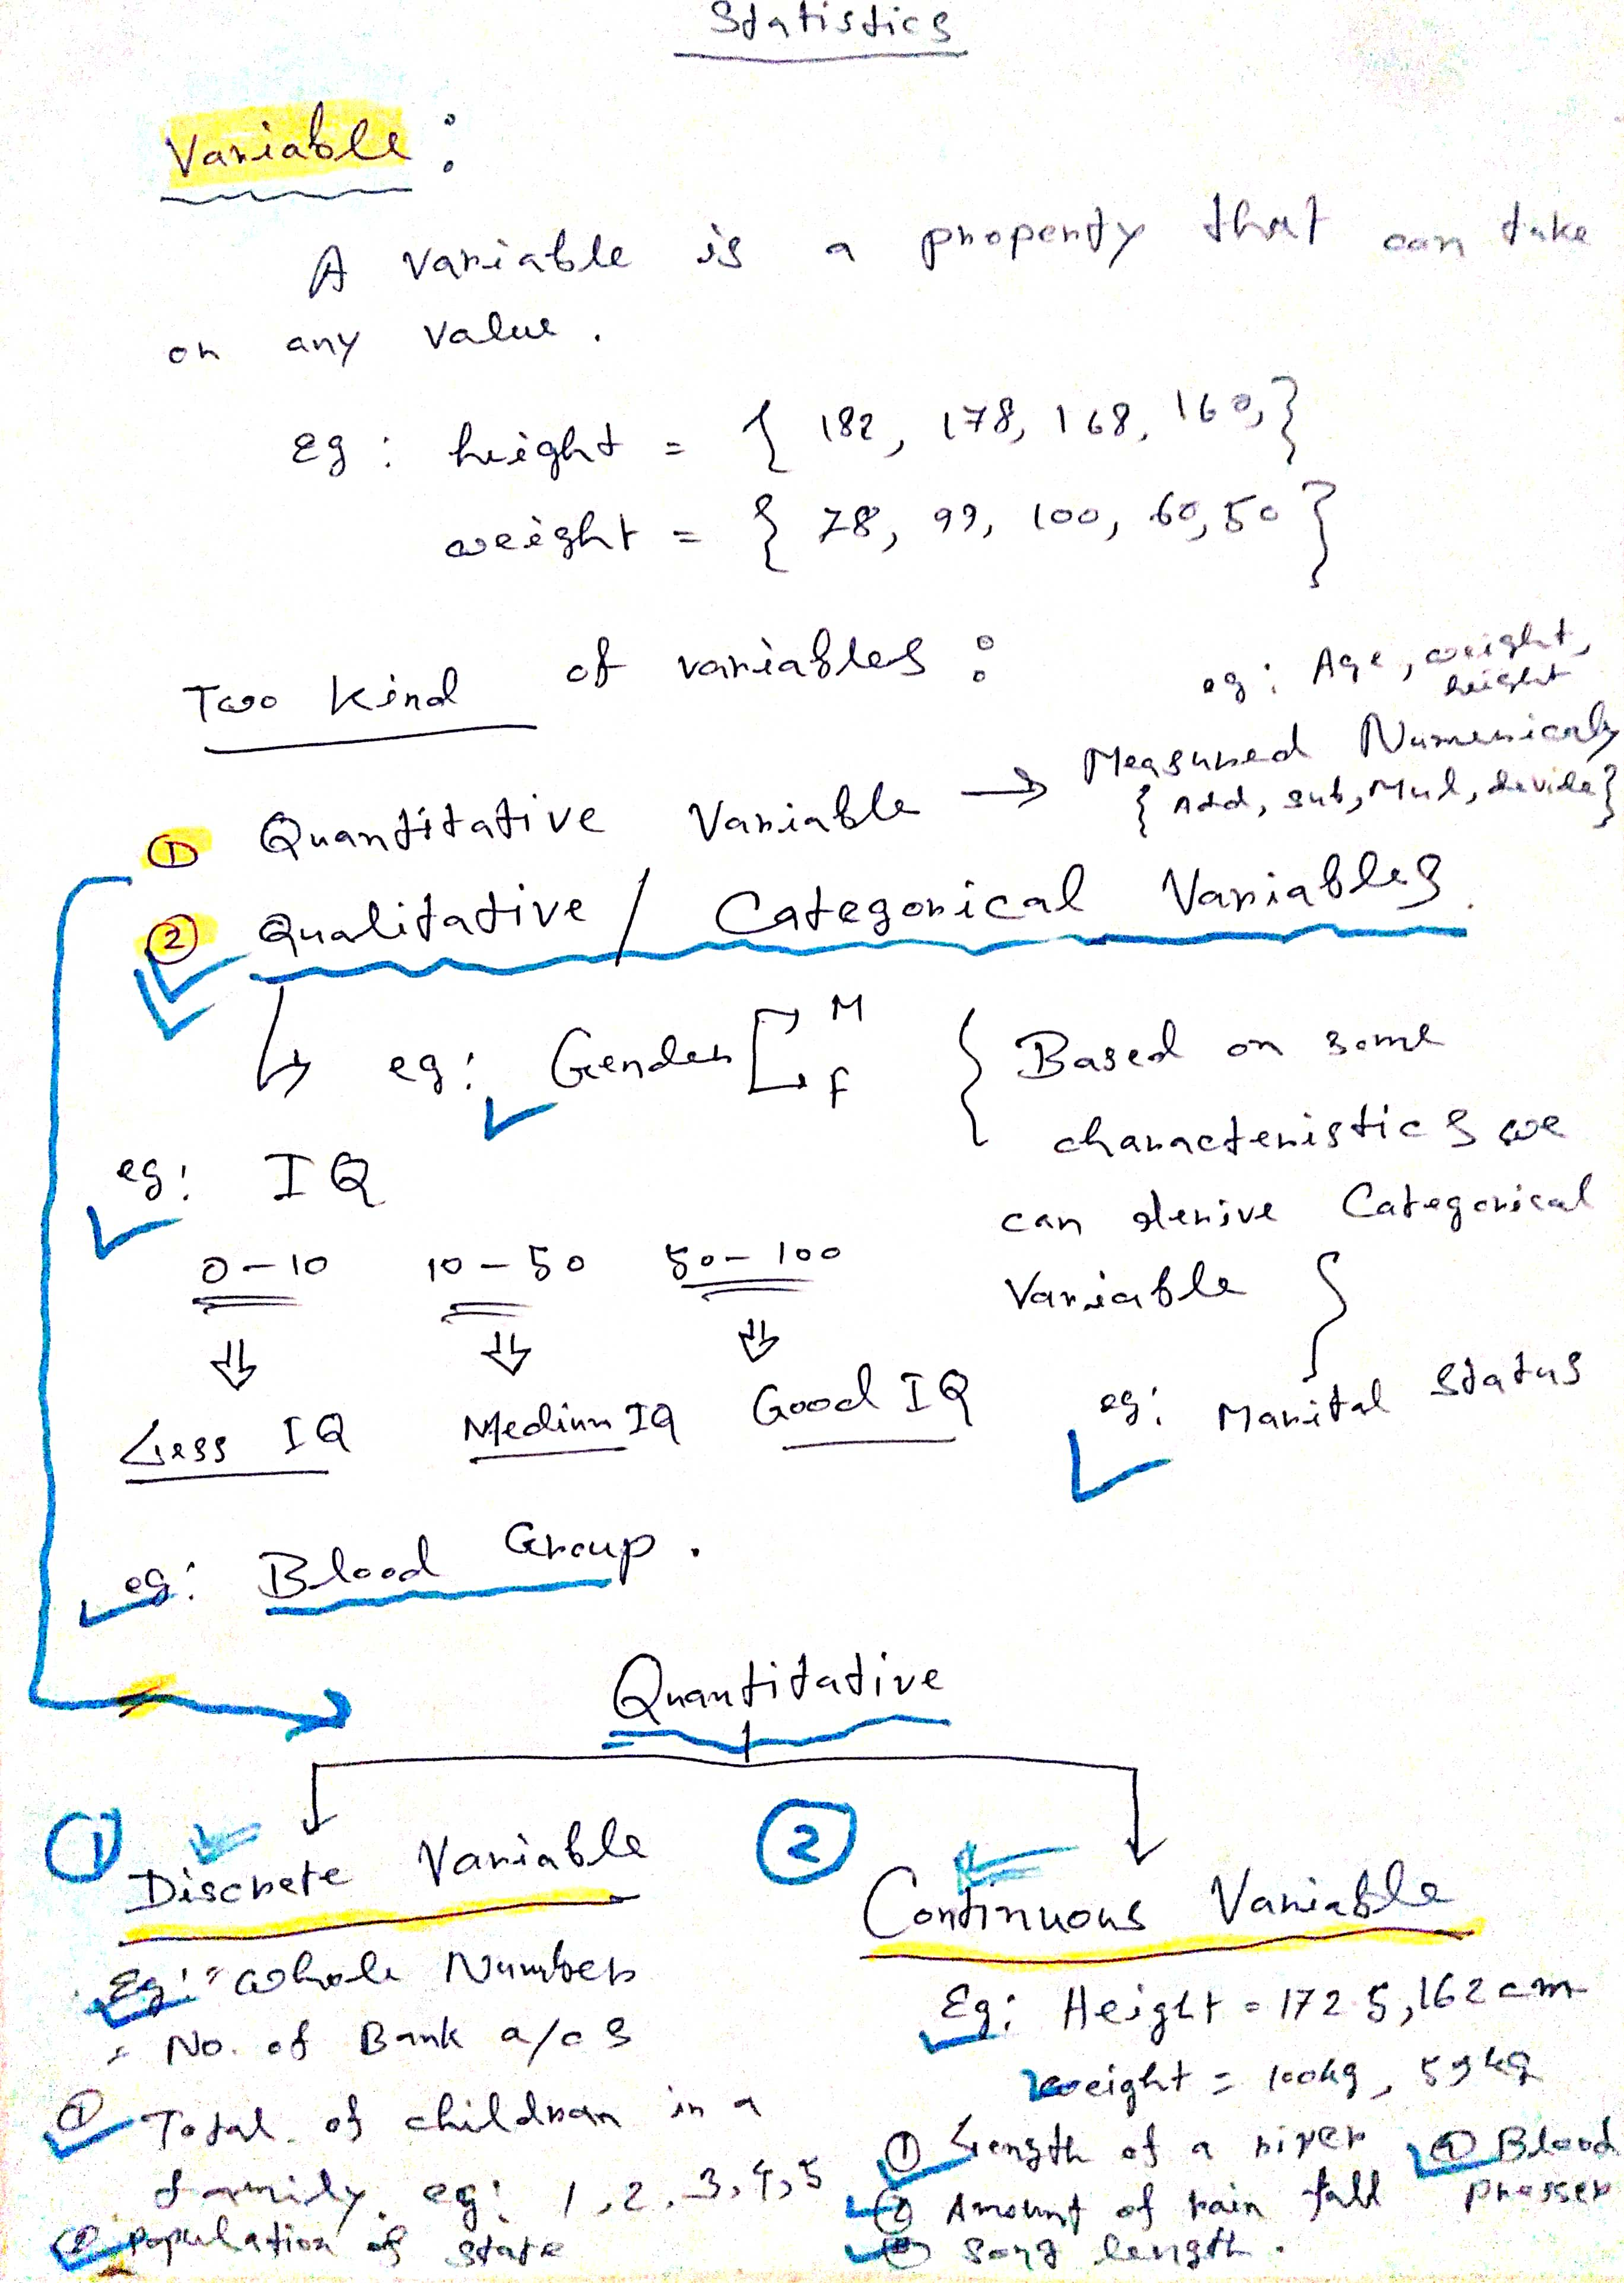 Statistics
Variable :
A variable is a property that can take
on any value.
eg : height = { 182, 178, 168, 160, }
weight = { 78, 99, 100, 60, 50 }
Two Kind of variables :
eg : Age, weight, height
① Quantitative Variable → Measured Numerically
{ Add, sub, Mul, devide }
② Qualitative / Categorical Variables.
↳ eg : Gender [ M F
{ Based on some
characteristics we
can derive Categorical
Variable }
eg : IQ
0 - 10 10 - 50 50 - 100
Less IQ Medium IQ Good IQ
eg : Marital Status
eg : Blood Group.
Quantitative
① Discrete Variable
Eg : Whole Number
No. of Bank a/c s
① Total of children in a
family. eg : 1, 2, 3, 4, 5
② population of state
② Continuous Variable
Eg : Height = 172.5, 162 cm
weight = 100kg, 59kg
① Length of a river
② Amount of rain fall
③ Song length.
④ Blood
presser